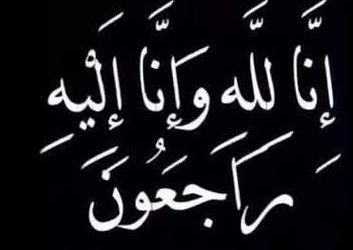 إِنَّا لِلّٰهِ وَإِنَّا إِلَيْهِ
رَاجَعُونَ